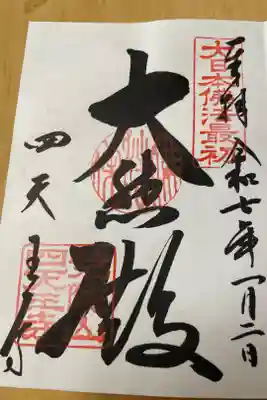 奉拝 令和七年一月二日
大日本佛法最初
大悲殿
四天王寺
四天王寺